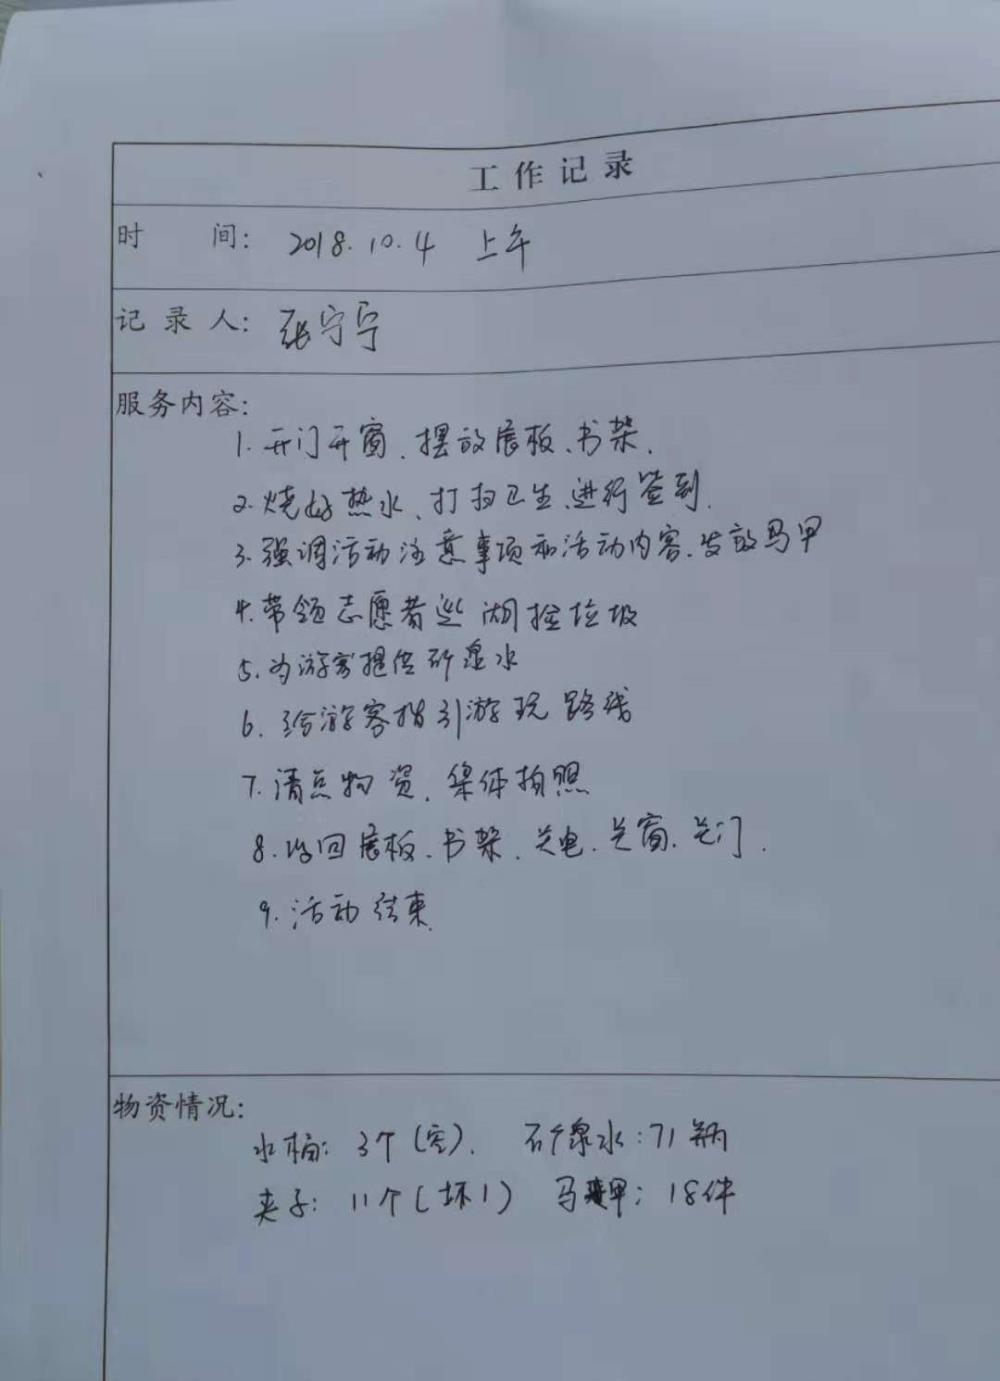 工作记录
时 间: 2018.10.4 上午
记录人: 张宁宁
服务内容:
1.开门开窗、摆放展板、书架.
2.烧好热水、打扫卫生、进行签到.
3.强调活动注意事项和活动内容、发放马甲
4.带领志愿者巡湖捡垃圾
5.为游客提供矿泉水
6.给游客指引游玩路线
7.清点物资、集体拍照
8.收回展板、书架、关电、关窗、关门.
9.活动结束.
物资情况:
水桶: 3个(空). 矿泉水:71瓶
夹子: 11个(坏1) 马甲: 18件